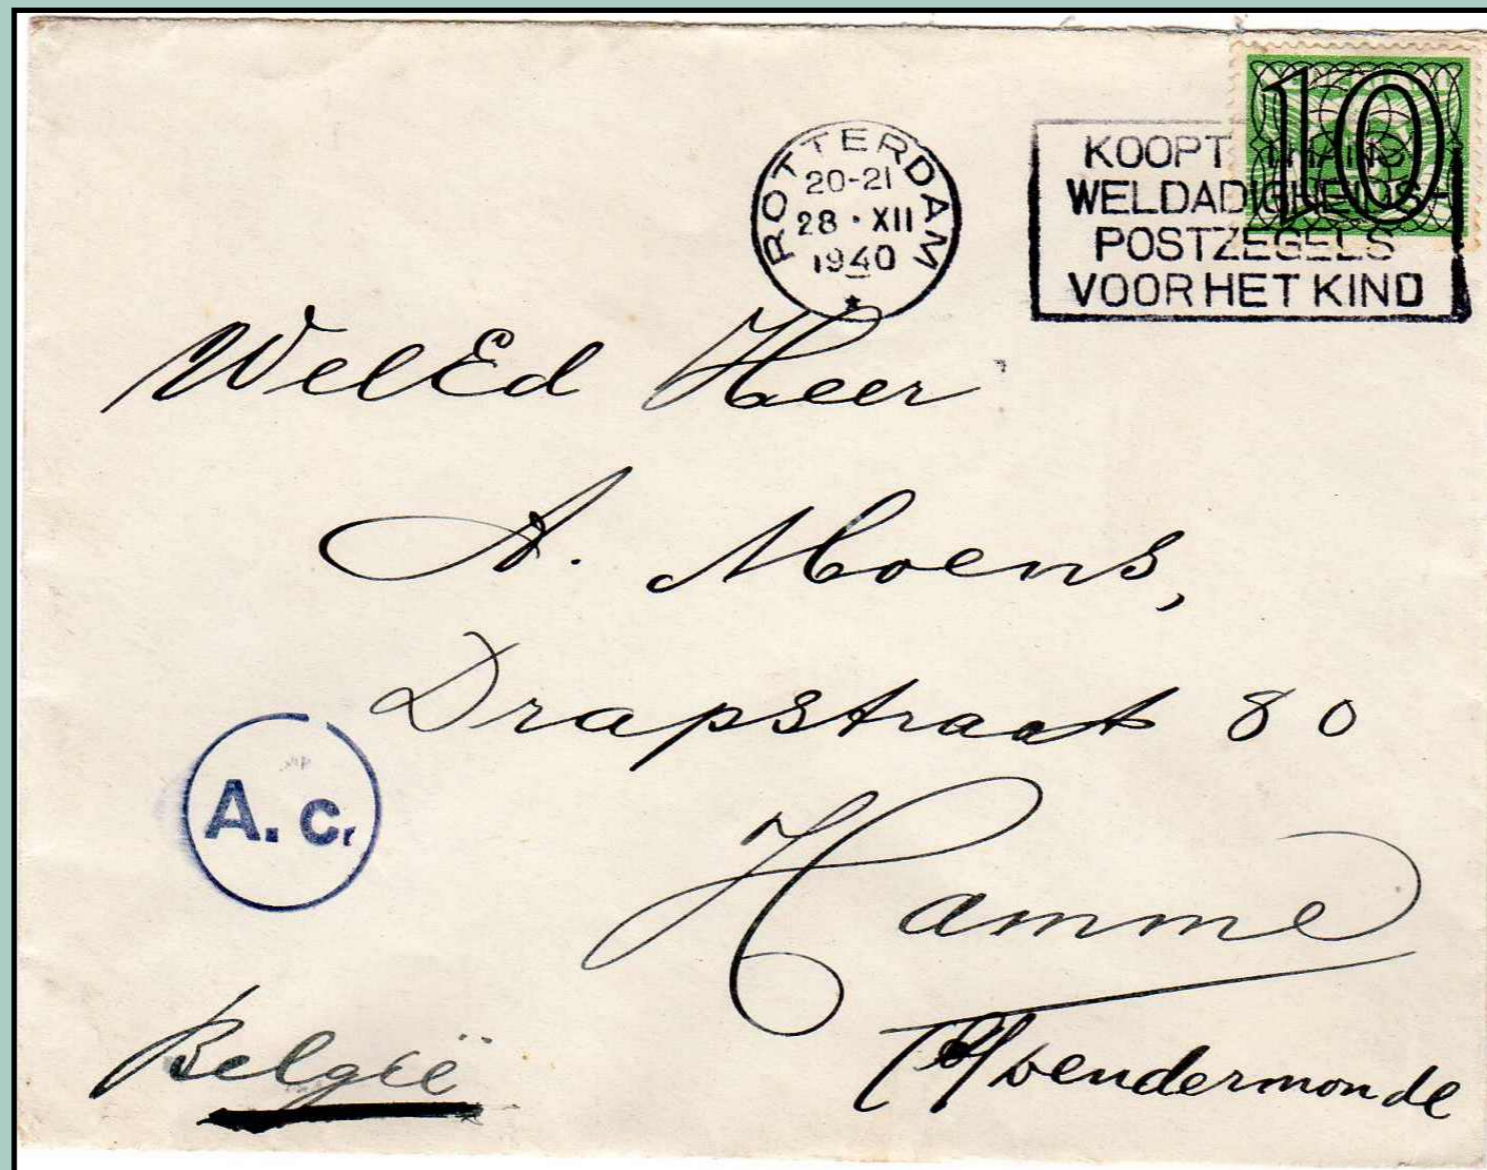 10
ROTTERDAM
20-21
28 · XII
1940
KOOPT THANS
WELDADIGHEIDS-
POSTZEGELS
VOOR HET KIND
WelEd Heer
A. Moens,
Drapstraat 80
A. c.
Hamme
België
dendermonde